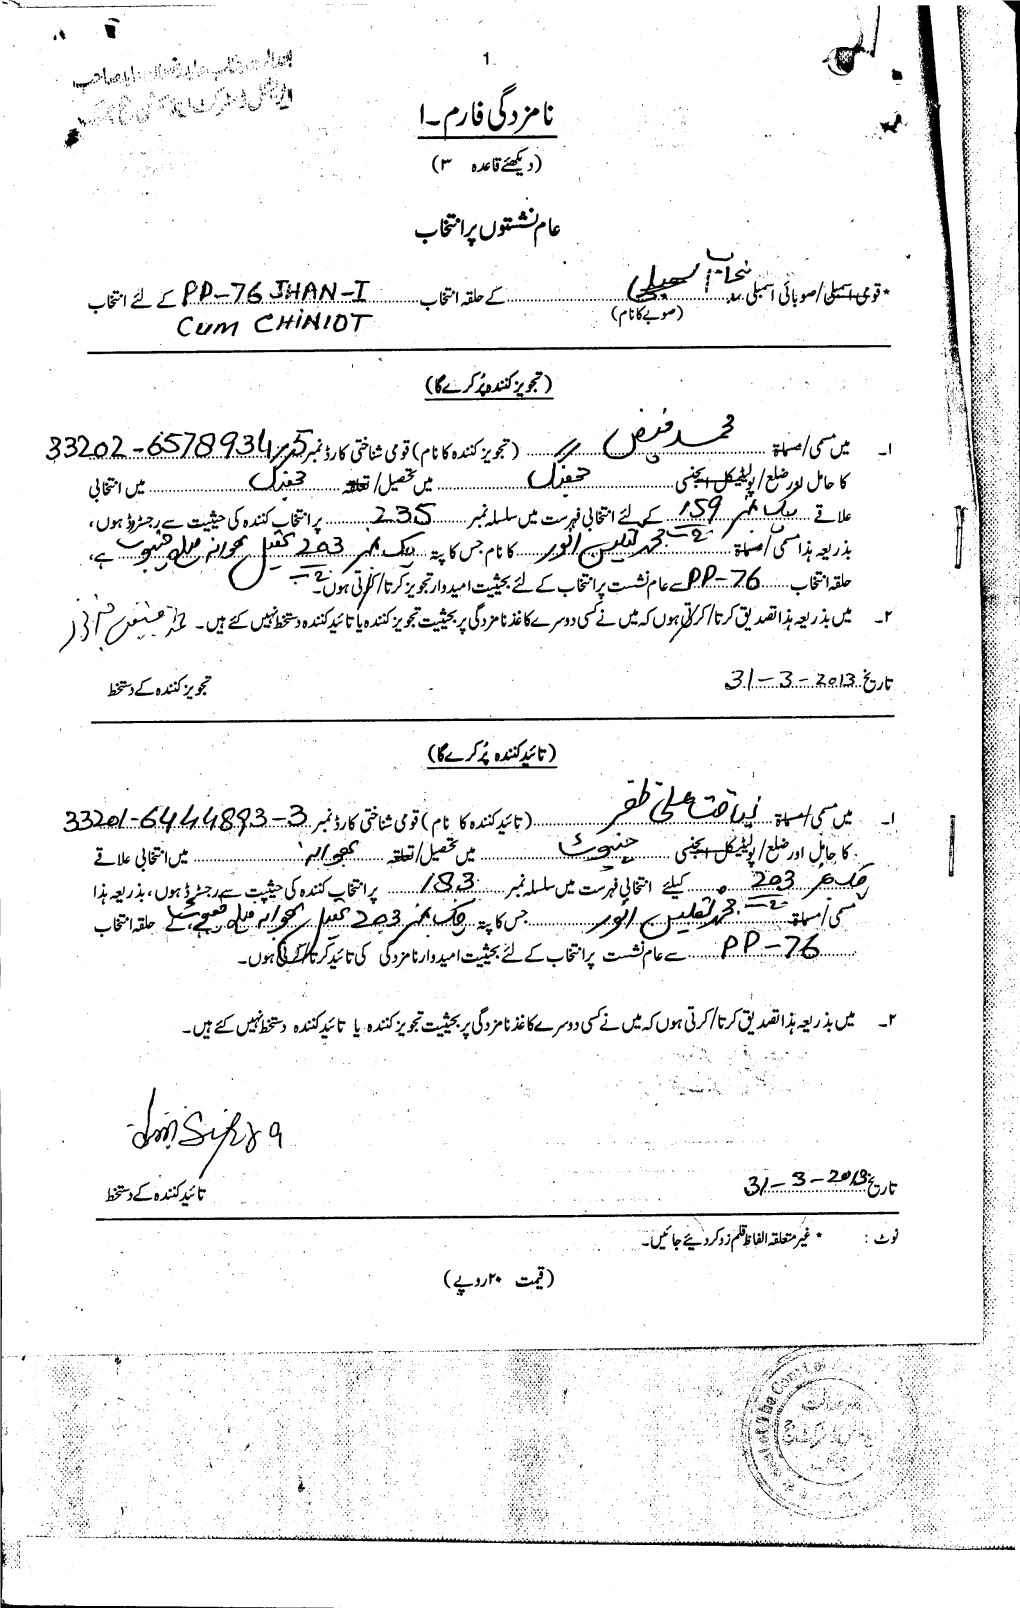 1
نامزدگی فارم۔ا
(دیکھئے قاعدہ ۳)
عام نشستوں پر انتخاب
* قومی اسمبلی/صوبائی اسمبلی پنجاب اسمبلی کے حلقہ انتخاب PP-76 JHAN-I کے لئے انتخاب
(صوبے کا نام)
CUM CHINIOT
(تجویز کنندہ پُر کرے گا)
۱۔ میں مسمی/مسماۃ محمد فیض (تجویز کنندہ کا نام) قومی شناختی کارڈ نمبر 33202-6578934-5
کا حامل اور ضلع/پولیٹیکل ایجنسی جھنگ میں تحصیل/تعلقہ جھنگ میں انتخابی
علاقے چک نمبر 159 کے لئے انتخابی فہرست میں سلسلہ نمبر 235 پر انتخاب کنندہ کی حیثیت سے رجسٹرڈ ہوں،
بذریعہ ہذا مسمی/مسماۃ محمد ثقلین انور کا نام جس کا پتہ چک نمبر 203 تحصیل بھوانہ ضلع چنیوٹ ہے،
حلقہ انتخاب PP-76 سے عام نشست پر انتخاب کے لئے بحیثیت امیدوار تجویز کرتا/کرتی ہوں۔
۲۔ میں بذریعہ ہذا تصدیق کرتا/کرتی ہوں کہ میں نے کسی دوسرے کاغذ نامزدگی پر بحیثیت تجویز کنندہ یا تائید کنندہ دستخط نہیں کئے ہیں۔
تاریخ 31-3-2013
تجویز کنندہ کے دستخط
(تائید کنندہ پُر کرے گا)
۱۔ میں مسمی/مسماۃ علی ظفر (تائید کنندہ کا نام) قومی شناختی کارڈ نمبر 33201-6444893-3
کا حامل اور ضلع/پولیٹیکل ایجنسی چنیوٹ میں تحصیل/تعلقہ بھوانہ میں انتخابی علاقے
چک نمبر 203 کیلئے انتخابی فہرست میں سلسلہ نمبر 183 پر انتخاب کنندہ کی حیثیت سے رجسٹرڈ ہوں، بذریعہ ہذا
مسمی/مسماۃ محمد ثقلین انور جس کا پتہ چک نمبر 203 تحصیل بھوانہ ضلع چنیوٹ ہے، کے حلقہ انتخاب
PP-76 سے عام نشست پر انتخاب کے لئے بحیثیت امیدوار نامزدگی کی تائید کرتا/کرتی ہوں۔
۲۔ میں بذریعہ ہذا تصدیق کرتا/کرتی ہوں کہ میں نے کسی دوسرے کاغذ نامزدگی پر بحیثیت تجویز کنندہ یا تائید کنندہ دستخط نہیں کئے ہیں۔
تاریخ 31-3-2013
تائید کنندہ کے دستخط
نوٹ : * غیر متعلقہ الفاظ قلم زد کر دیئے جائیں۔
(قیمت ۲۰ روپے)